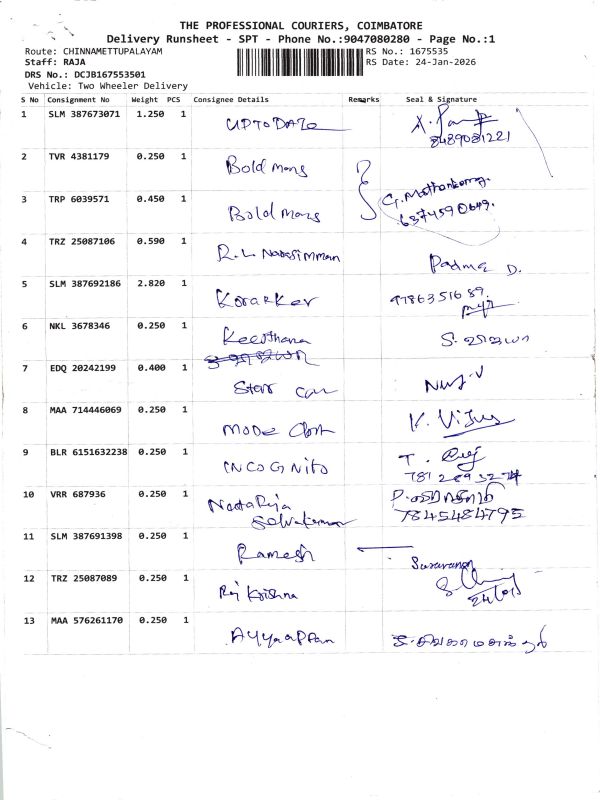 THE PROFESSIONAL COURIERS, COIMBATORE
Delivery Runsheet - SPT - Phone No.:9047080280 - Page No.:1
Route: CHINNAMETTUPALAYAM RS No.: 1675535
Staff: RAJA RS Date: 24-Jan-2026
DRS No.: DCJB167553501
Vehicle: Two Wheeler Delivery
S No Consignment No Weight PCS Consignee Details Remarks Seal & Signature
1 SLM 387673071 1.250 1 UPTODATE
8489081221
2 TVR 4381179 0.250 1 Bold mans
3 TRP 6039571 0.450 1 Bold mans G.
6374590649.
4 TRZ 25087106 0.590 1 R.L. Narasimman Padma D.
5 SLM 387692186 2.820 1 Korakker 9786351689.
6 NKL 3678346 0.250 1 Keerthana
7 EDQ 20242199 0.400 1 Star car
8 MAA 714446069 0.250 1 MODE K. Vijay
9 BLR 6151632238 0.250 1 INCOGNITO T.
10 VRR 687936 0.250 1 Nataraja
Selvakumar 7845484795
11 SLM 387691398 0.250 1 Ramesh
12 TRZ 25087089 0.250 1 Raj Krishna
24/01
13 MAA 576261170 0.250 1 Ayyaappan